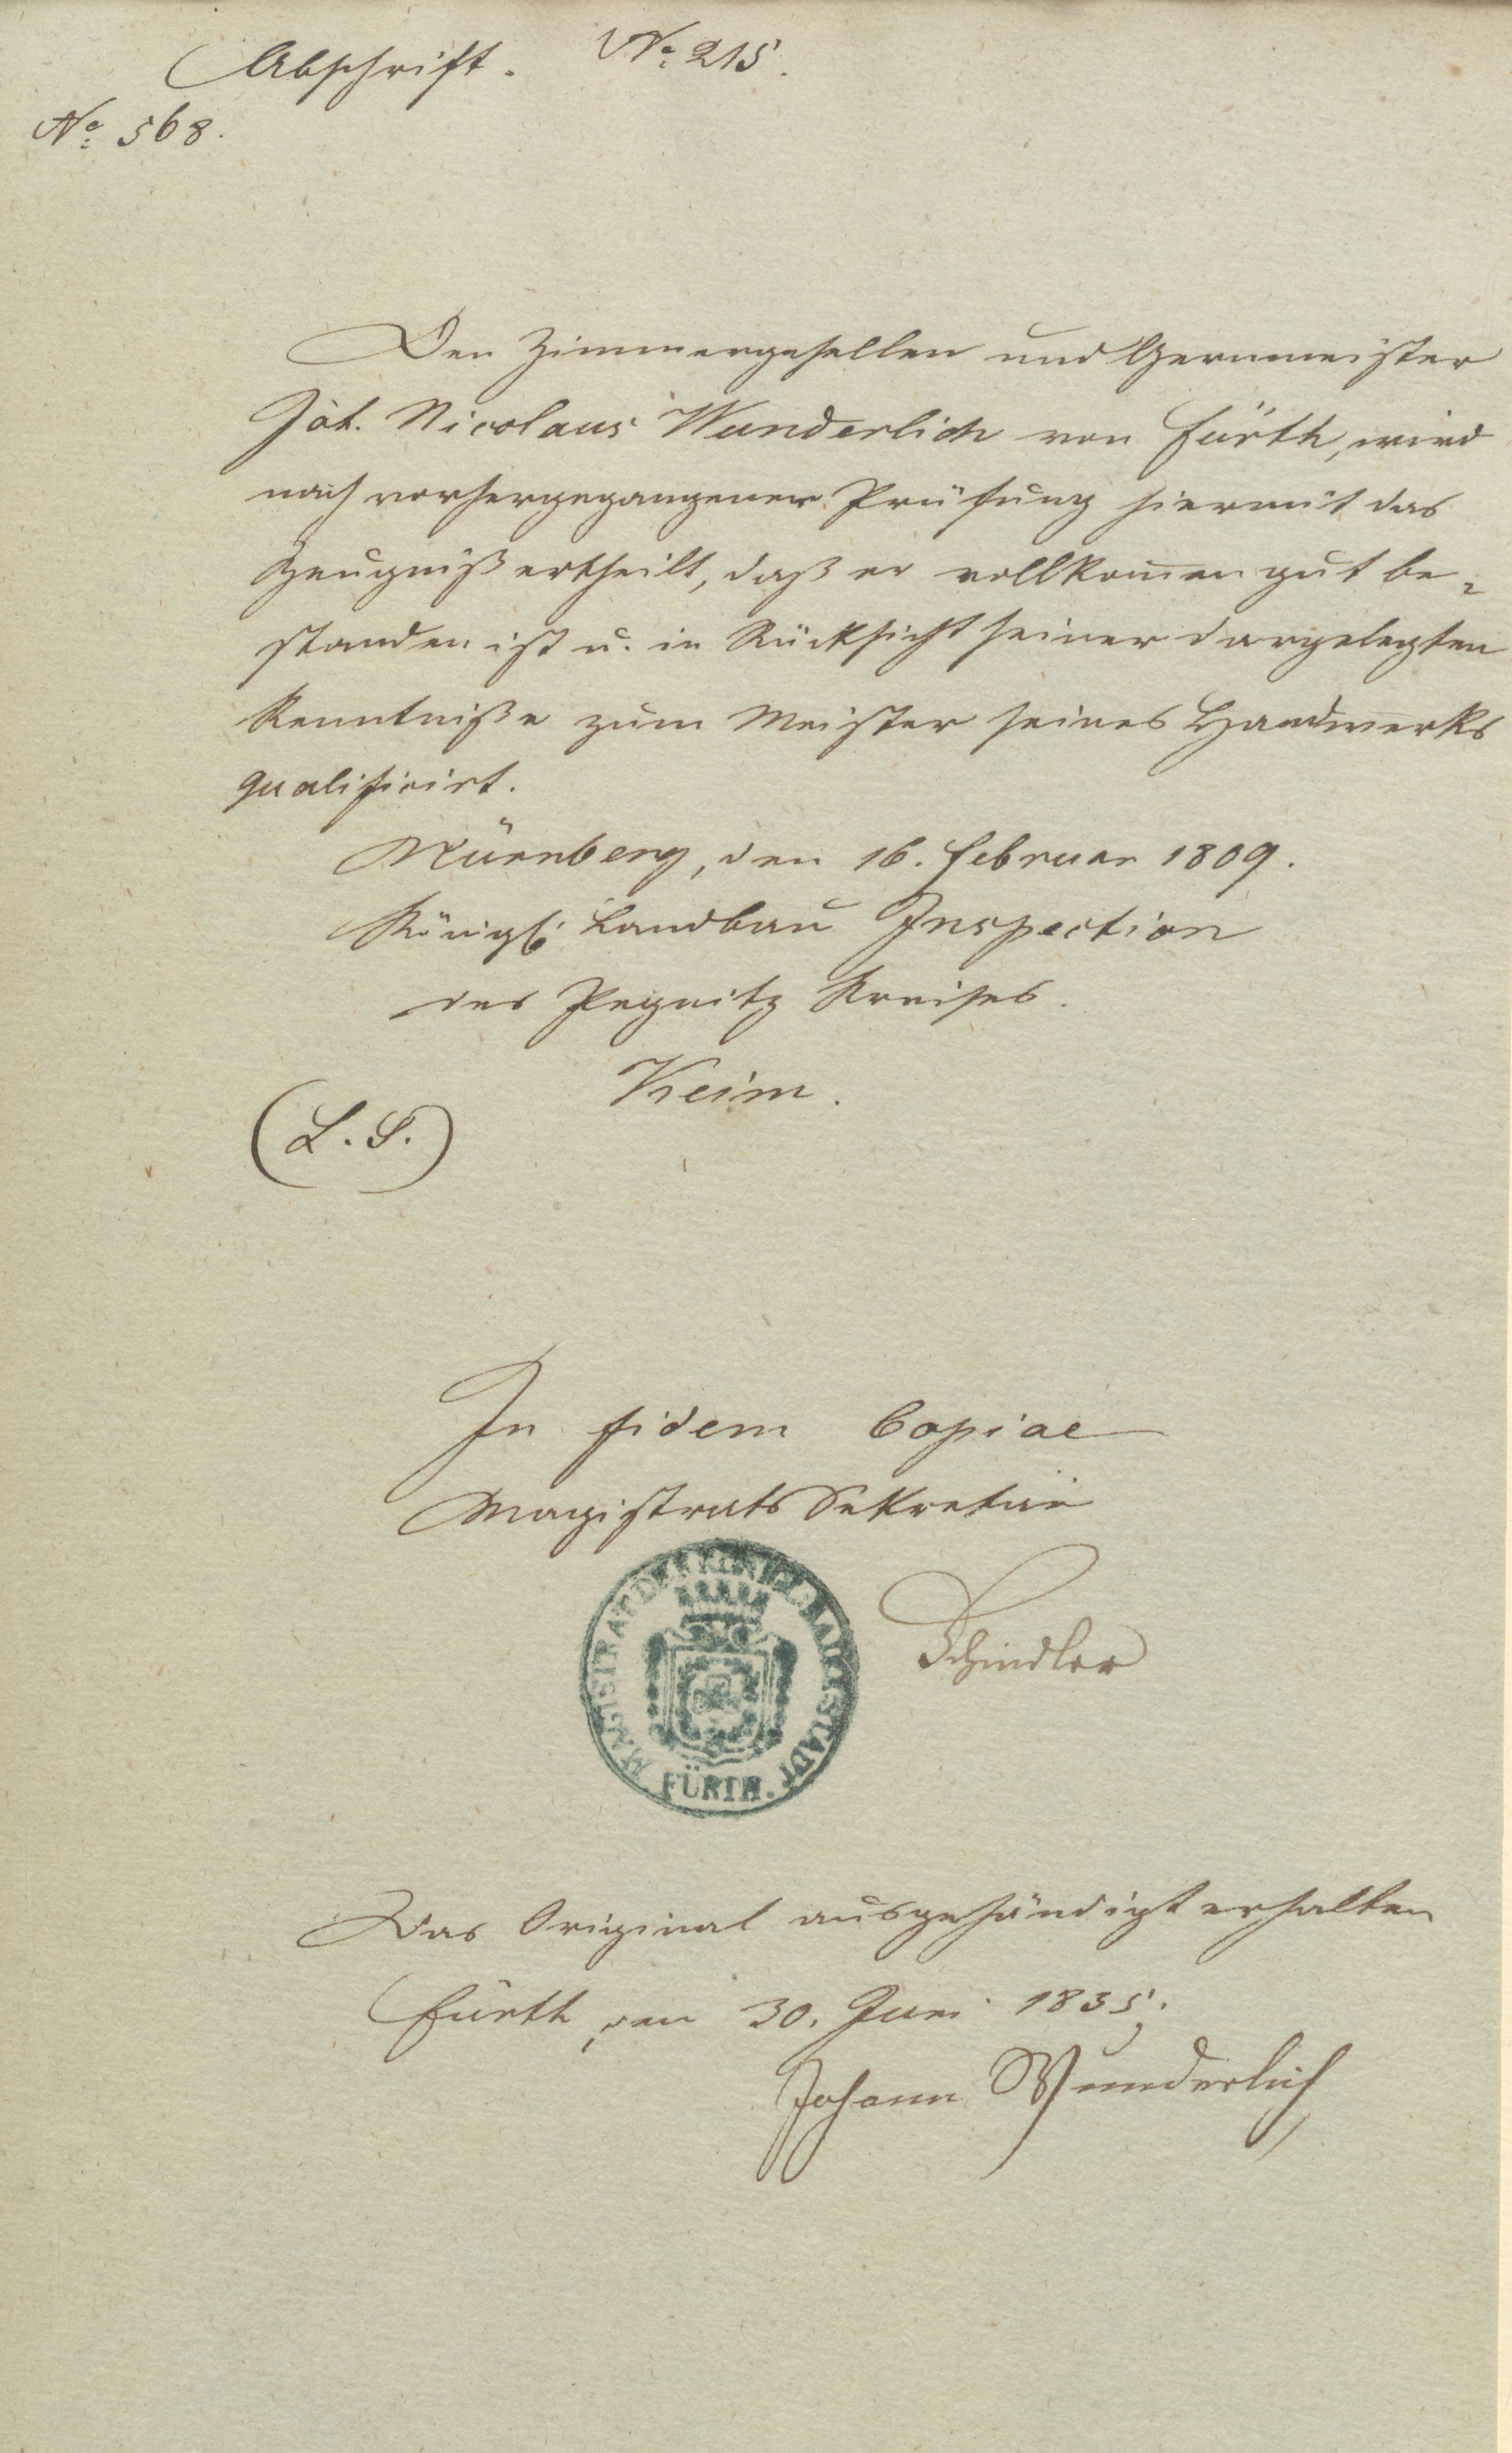 Abschrift. No. 215.
No. 568.
Den Zimmergesellen und Germeister
Joh. Nicolaus Wunderlich von Fürth, wird
nach vorhergegangener Prüfung hiermit das
Zeugniß ertheilt, daß er vollkom̄en gut be-
standen ist u. in Rücksicht seiner dargelegten
Kenntniße zum Meister seines Handwerks
qualificirt.
Nürnberg, den 16. Februar 1809.
Königl. Landbau Inspection
des Pegnitz Kreises.
Keim.
(L. S.)
In fidem Copiae
Magistrats Sekretär
Schindler
MAGISTRAT DER KÖNIGL. BAI. STADT
FÜRTH.
Das Original ausgehändigt erhalten
Fürth, den 30. Juni 1835.
Johann Wunderlich